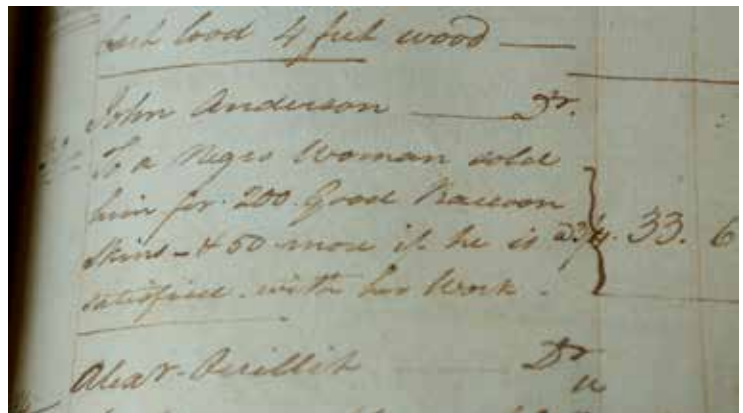 load 4 feet wood
John Anderson Dr.
To a Negro Woman sold
him for 200 Good Raccoon
Skins - & 50 more if he is 33. 6
satisfied with her Work.
Dr